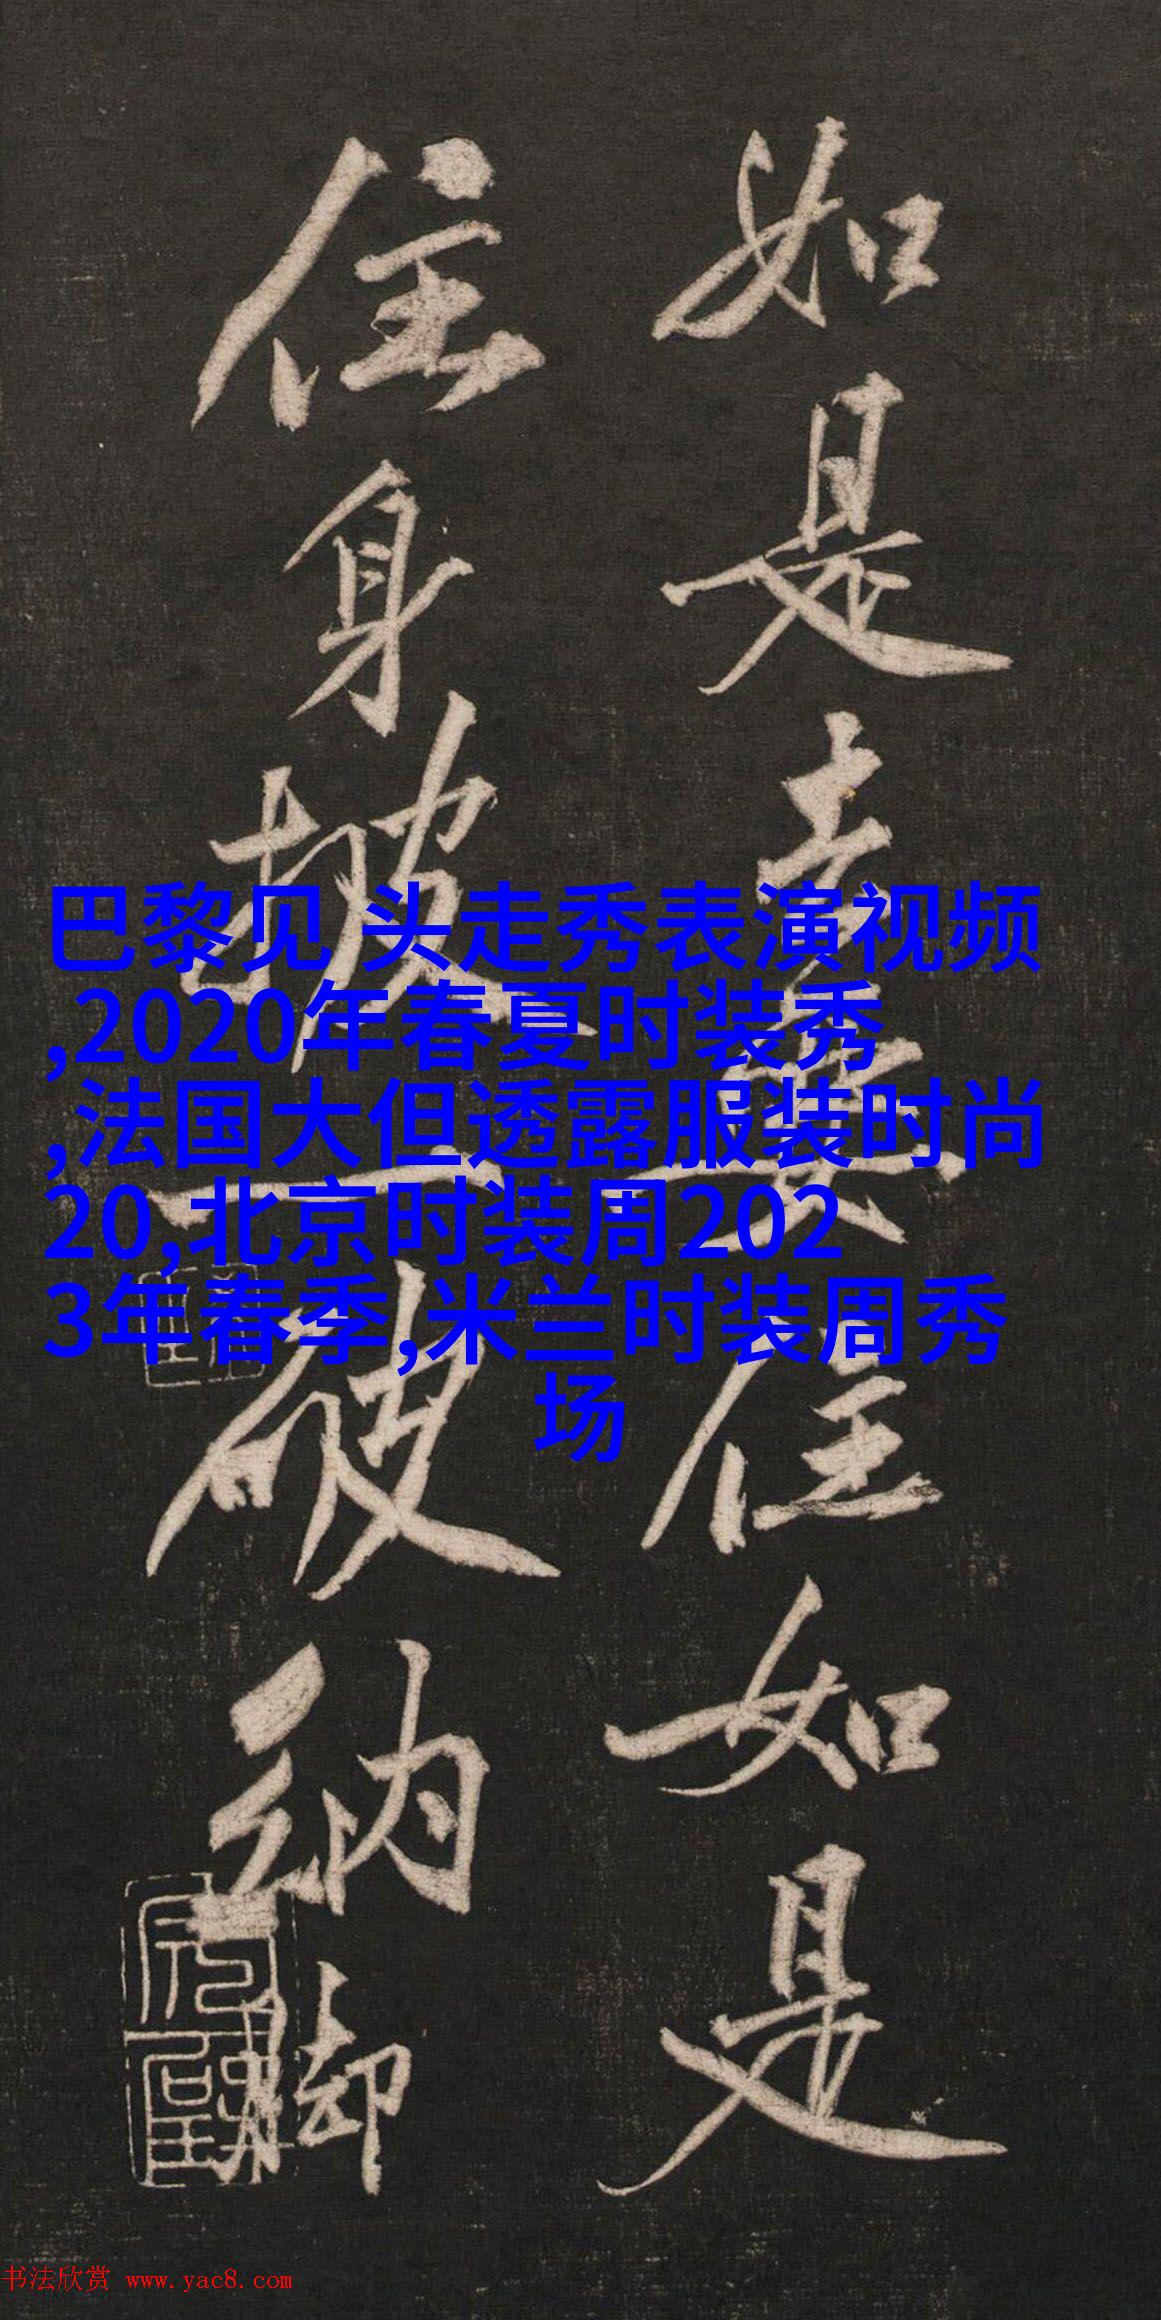 如是住如是
住身披一破衲脚
巴黎见 头走秀表演视频
,2020年春夏时装秀
,法国大但透露服装时尚
20,北京时装周202
3年春季,米兰时装周秀
场
书法欣赏 www.yac8.com